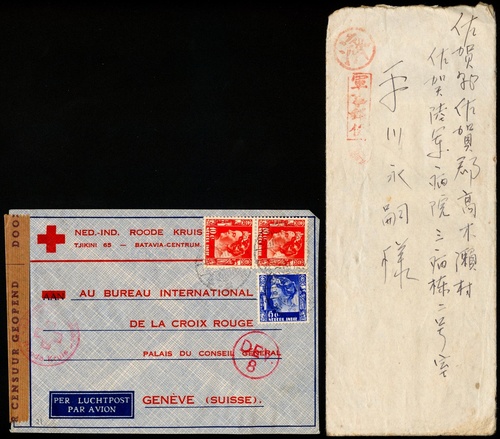 DOO
R CENSUUR GEOPEND
NED.-IND. ROODE KRUIS
TJIKINI 65 — BATAVIA-CENTRUM.
AAN
AU BUREAU INTERNATIONAL
DE LA CROIX ROUGE
PALAIS DU CONSEIL GENERAL
GENÈVE (SUISSE).
PER LUCHTPOST
PAR AVION
DE
8
佐賀縣佐賀郡高木瀬村
佐賀陸軍病院三病棟二号室
川永嗣様
軍